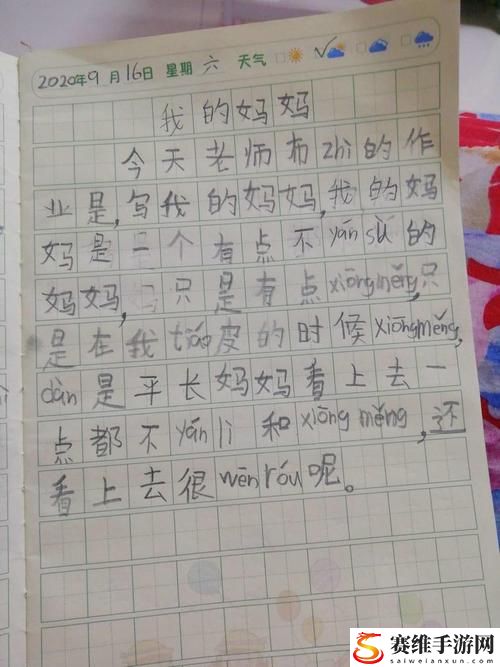 2020年9月16日 星期六 天气
我的妈妈
今天老师布zhì的作
业是，写我的妈妈，我的妈
妈是一个有点不yán sù的
妈妈，只是有点xiōngměng，只
是在我tiáo皮的时候xiōngměng，
dàn是平长妈妈看上去一
点都不yán lì和xiōng měng，还
看上去很wēn róu呢。
赛维手游网
saiweilanxun.com